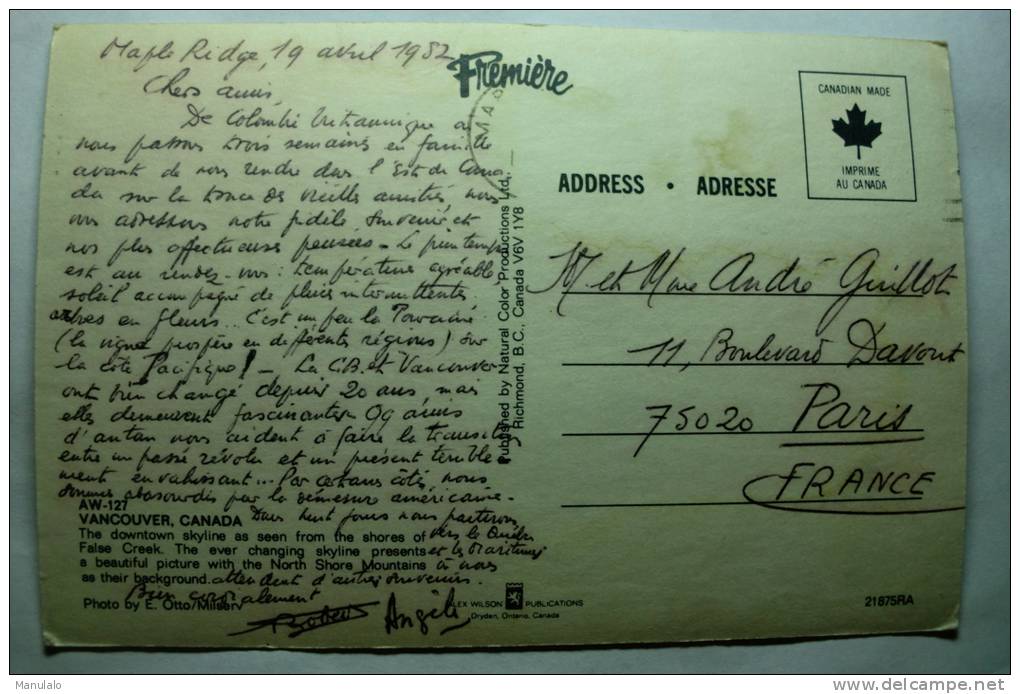 Maple Ridge, 19 avril 1982
Chers amis,
De Colombie britannique où
nous passons trois semaines en famille
avant de nous rendre dans l'Est du Cana
da sur la trace de vieilles amitiés, nous
vous adressons notre fidèle souvenir et
nos plus affectueuses pensées - Le printemps
est au rendez-vous : température agréable
soleil accompagné de pluies intermittentes.
arbres en fleurs... C'est un peu la Touraine
(la vigne prospère en différentes régions) sur
la côte Pacifique! - La C.B. et Vancouver
ont bien changé depuis 20 ans mais
elles demeurent fascinantes. Qq amis
d'antan nous aident à faire la transition
entre un passé révolu et un présent terrible
ment envahissant... Par certains côtés, nous
sommes abasourdis par la démesure américaine -
Dans huit jours nous partirons
vers le Québec
et les Maritimes
où nous
attendent d'autres souvenirs.
Bien cordialement
Angèle
AW-127
VANCOUVER, CANADA
The downtown skyline as seen from the shores of
False Creek. The ever changing skyline presents
a beautiful picture with the North Shore Mountains
as their background.
Photo by E. Otto/Miller
Première
MA
Published by Natural Color Productions Ltd.,
Richmond, B.C., Canada V6V 1Y8
ALEX WILSON PUBLICATIONS
Dryden, Ontario, Canada
CANADIAN MADE
IMPRIME
AU CANADA
ADDRESS • ADRESSE
M et Mme André Guillot
11, Boulevard Davout
75020 Paris
FRANCE
21875RA
Manulalo
delcampe.net